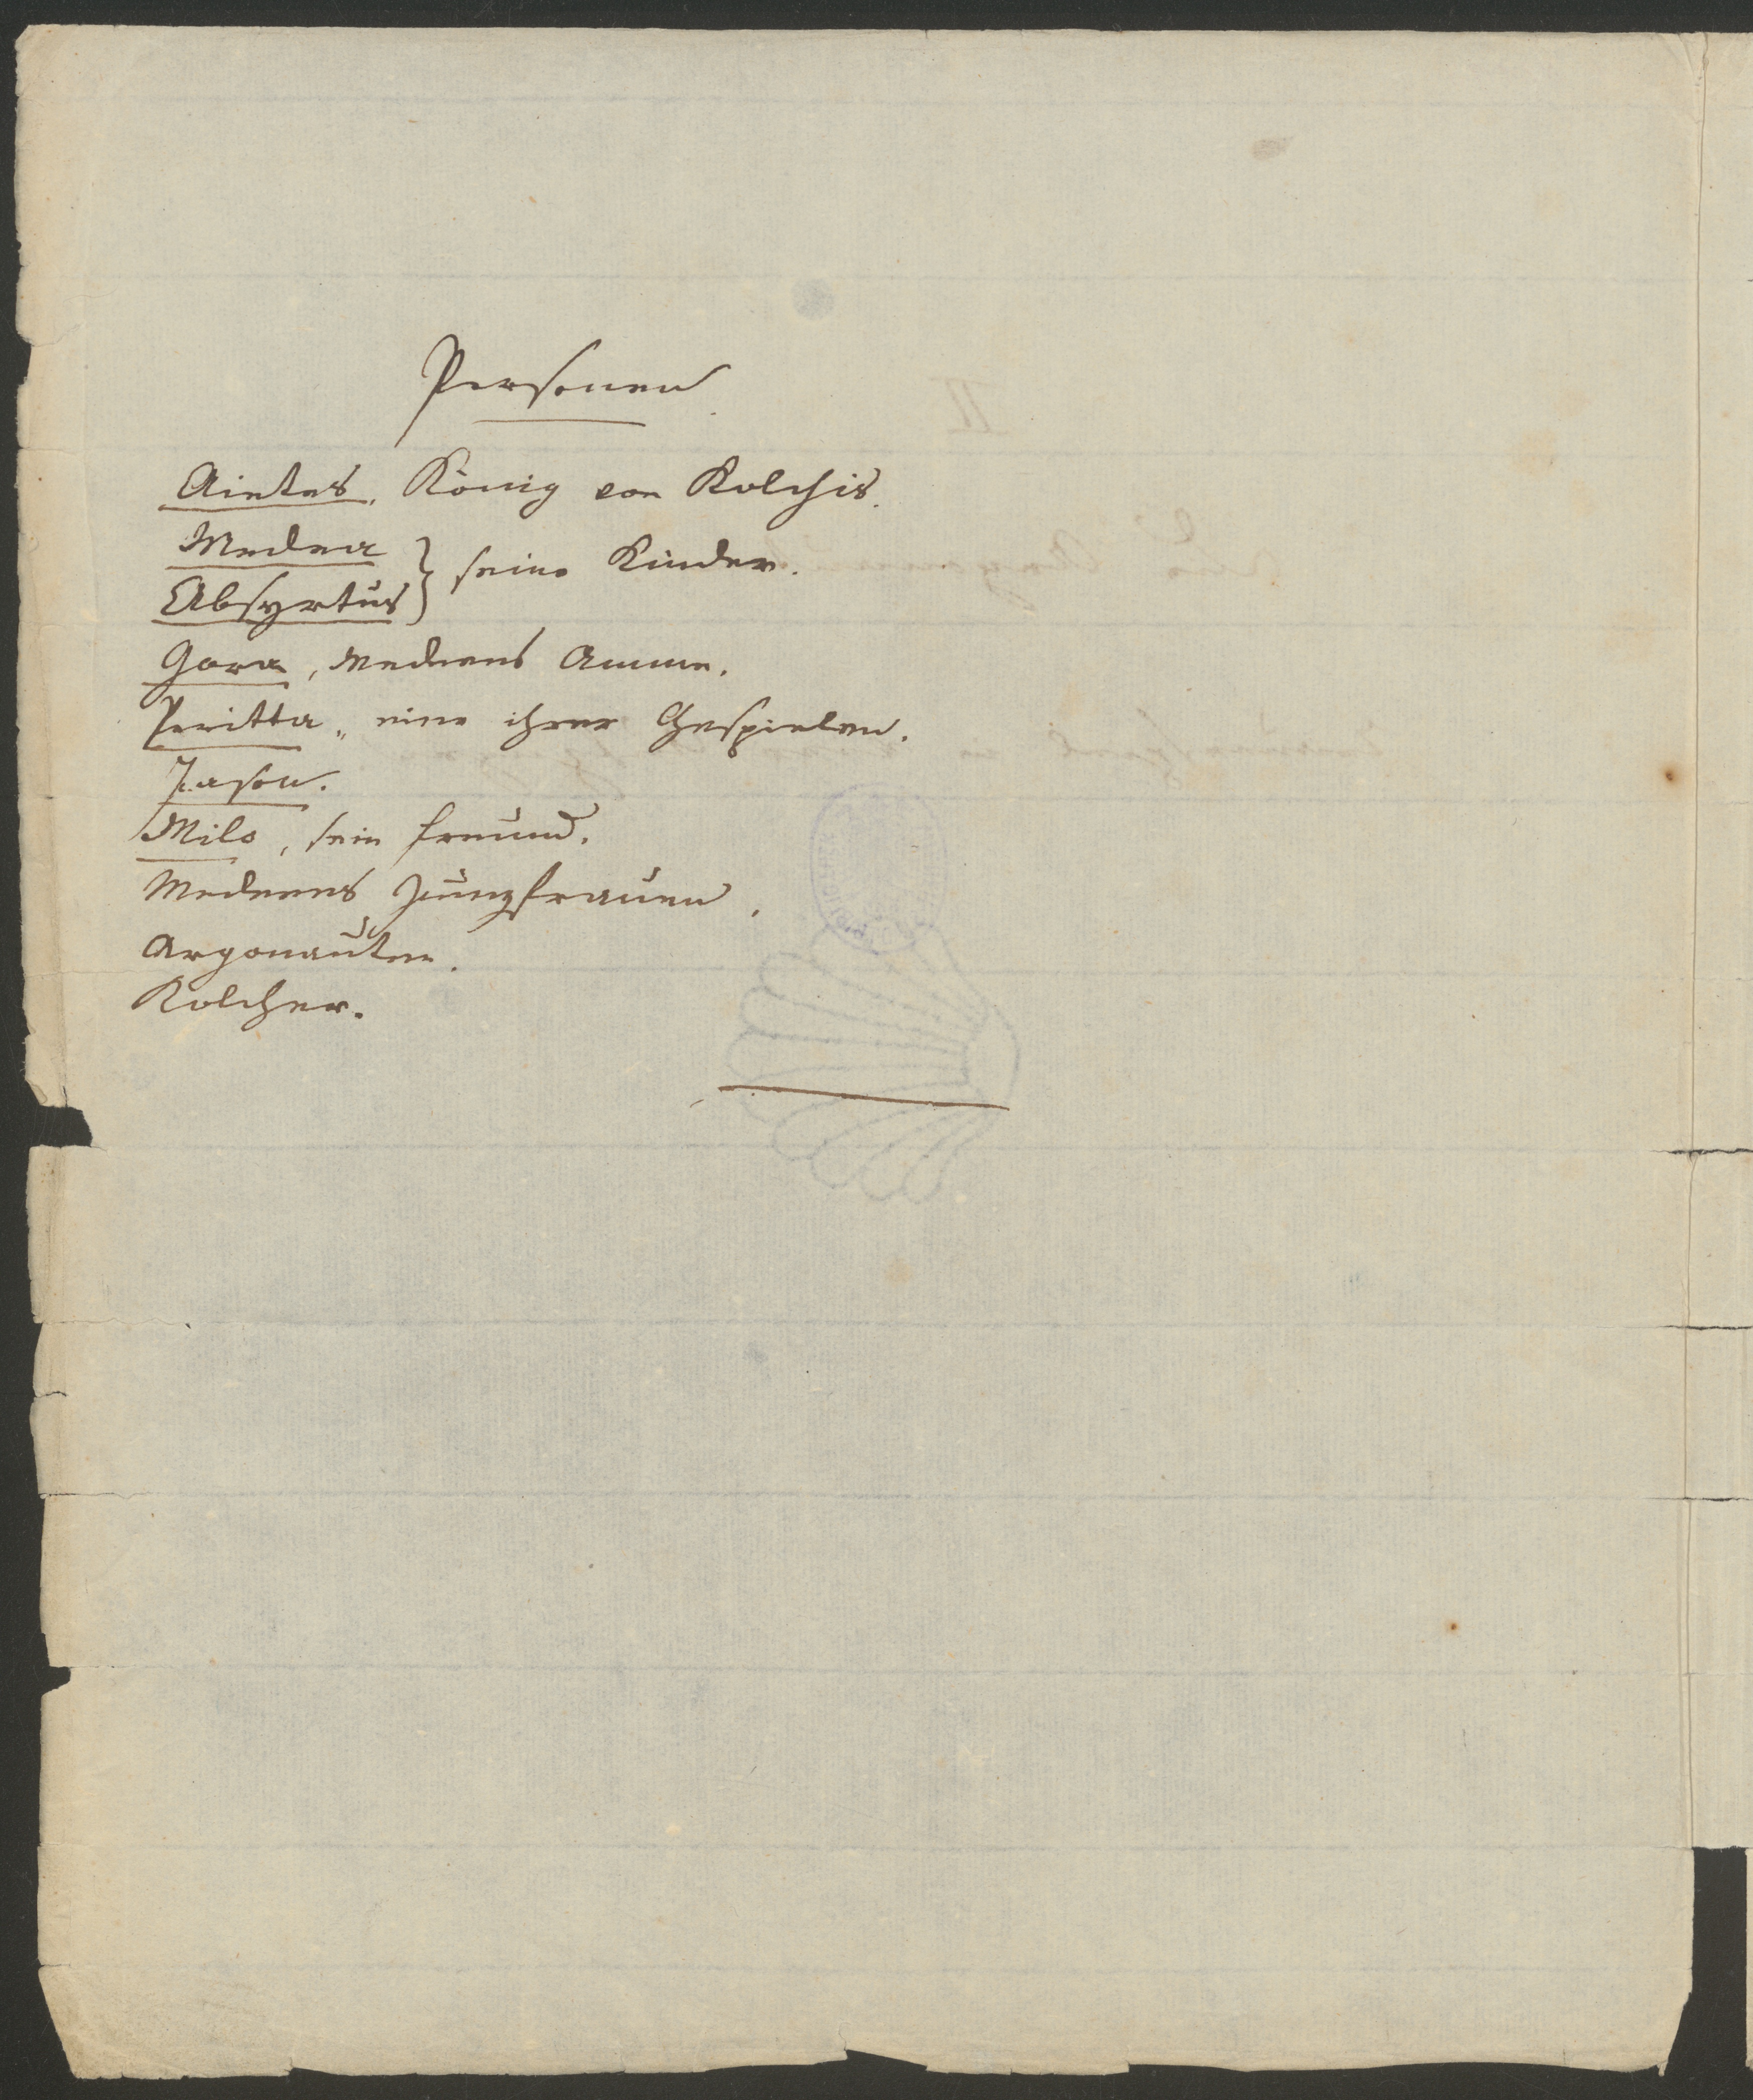 Personen
Aietes, König von Kolchis.
Medea
Absyrtus } seine Kinder.
Gora, Medeens Amme.
Peritta, eine ihrer Gespielen.
Jason.
Milo, sein Freund.
Medeens Jungfrauen.
Argonauten.
Kolcher.